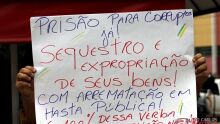 PRISÃO PARA CORRUPTOS
JÁ!
SEQUESTRO E
EXPROPRIAÇÃO
DE SEUS BENS!
COM ARREMATAÇÃO EM
HASTA PÚBLICA!
DESSA VERBA